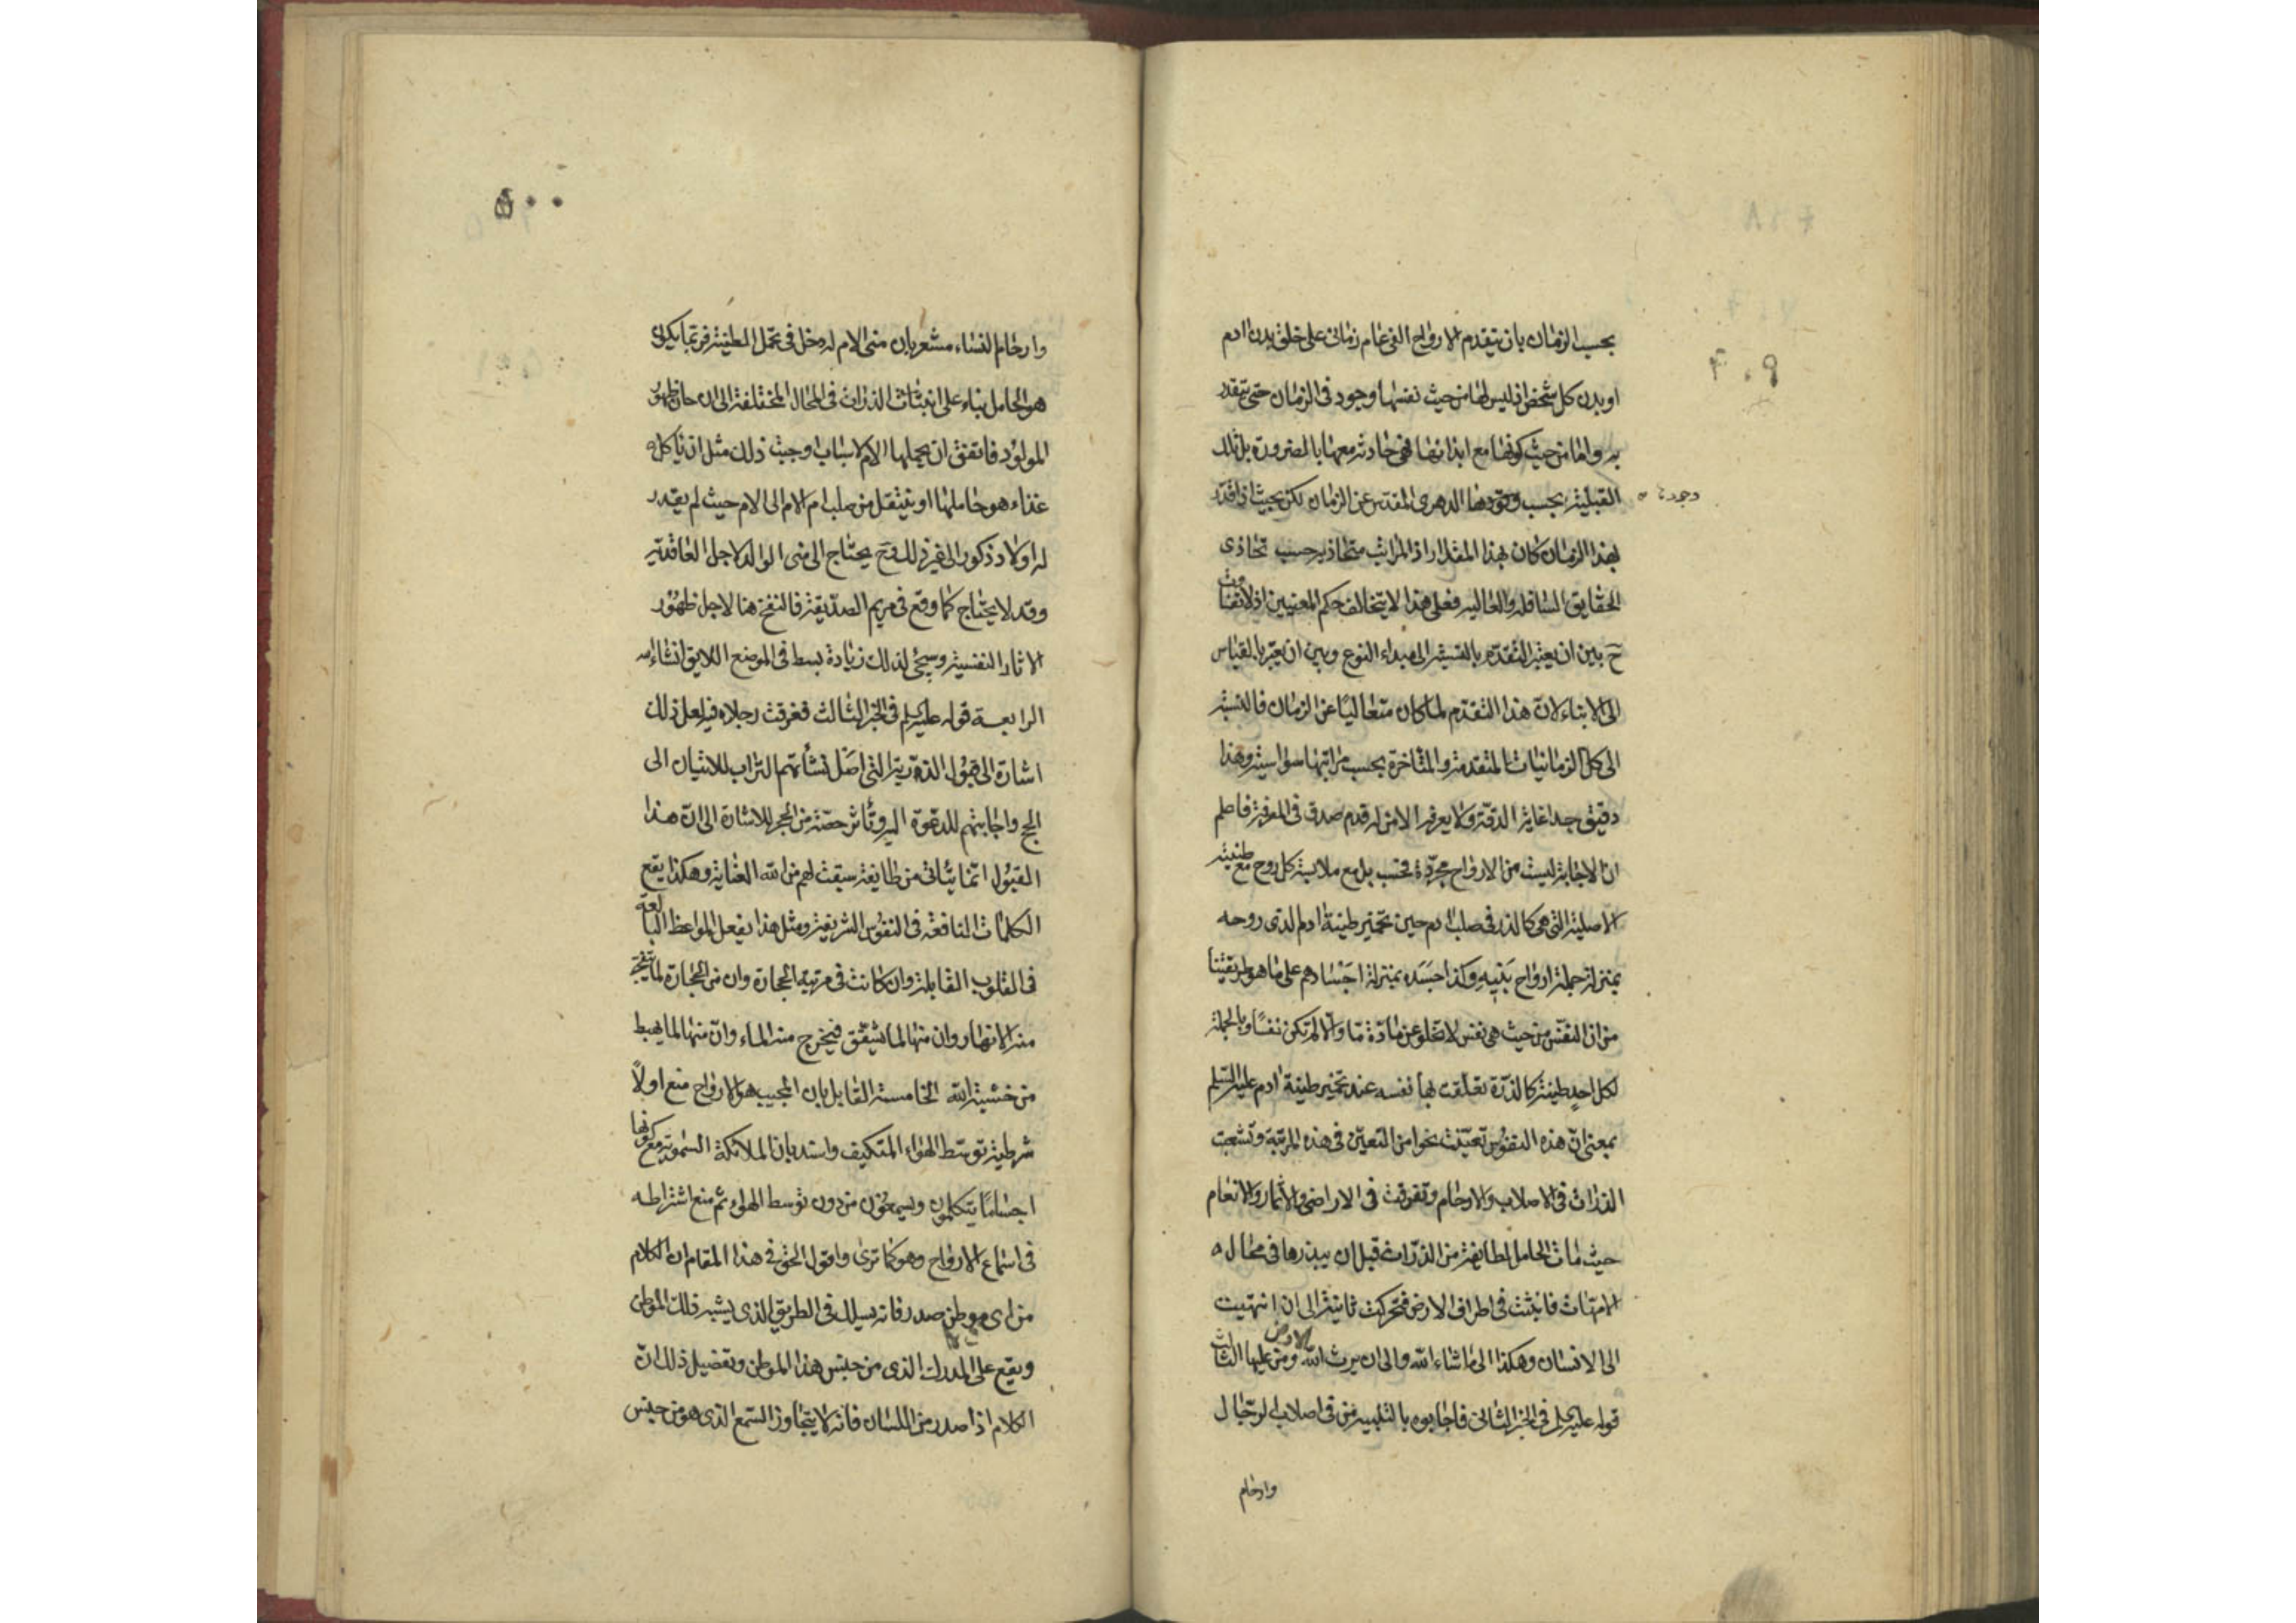 بحسب الزمان بان يتقدم الارواح الفى عام زمانى على خلق بدن ادم
او بدن كل شخص اذ ليس لها من حيث نفسها وجود فى الزمان حتى يتقدر
به واما من حيث كونها مع ابدانها فهى حادثه معها بالضرورة بل تلك
القبلية بحسب وجودها الدهرى المقدس عن الزمان لكن بحيث اذا قدر
وجودها
بهذا الزمان كان بهذا المقدار اذ المراتب متحاذية حسب تحاذى
الحقايق السافلة والعالية فعلى هذا لا يتخالف حكم المعنيين اذ لا تفاوت
ح بين ان يعتبر التقدم بالنسبة الى مبداء النوع وبين ان يعتبر بالقياس
الى الابناء لان هذا التقدم لما كان متعاليا عن الزمان فالنسبة
الى كل الزمانيات المتقدمة والمتاخرة بحسب مراتبها سواسية وهذا
دقيق جدا غاية الدقة ولا يعرفه الا من له قدم صدق فى المعرفة فاعلم
ان الاجابة ليست من الارواح مجردة فحسب بل مع ملابسة كل روح مع طينته
الاصلية التى هى كالذر فى صلب ادم حين تخمير طينة ادم الذى روحه
بمنزلة جملة ارواح بنيه وكذا جسده بمنزلة اجسادهم على ما هو طريقتنا
من ان النفس من حيث هى نفس لا تخلو عن مادة ما والا لم تكن نفسا وبالجملة
لكل احد طينة كالذرة تعلقت بها نفسه عند تخمير طينة ادم عليه السلم
بمعنى ان هذه النفوس تعينت نحوا من التعين فى هذه المرتبة وتشعبت
الذرات فى الاصلاب والارحام وتفرقت فى الاراضى والاثمار والانعام
حيث مات الحامل لطايفة من الذرات قبل ان يبذرها فى محال
الامهات فانبثت فى اطراف الارض فتحركت ثانية الى ان انتهيت
الى الانسان وهكذا الى ما شاء الله والى ان يرث الله الارض ومن عليها الثالث
قوله عليه السلم فى الخبر الثانى فاجابوه بالتلبية من فى اصلاب الرجال
وارحام
وارحام النساء مشعر بان منى الام له دخل فى تحمل الطينة فربما يكون
هو الحامل بناء على انبثاث الذرات فى المحال المختلفة الى ان حان ظهور
المولود فاتفق ان يحملها الام لاسباب اوجبت ذلك مثل ان ياكل
غذاء هو حاملها او ينتقل من صلب ام الام الى الام حيث لم يقدر
له اولاد ذكور الى غير ذلك وح يحتاج الى منى الوالد لاجل العاقدية
وقد لا يحتاج كما وقع فى مريم الصديقة فالنفخ هنا لاجل ظهور
الاثار النفسية وسيجئ لذلك زيادة بسط فى الموضع اللايق انشاءالله
الرابعة قوله عليه السلم فى الخبر الثالث فغرقت رجلاه فيه لعل ذلك
اشارة الى قبول الذرية التى اصل نشأتهم التراب للاتيان الى
الحج واجابتهم للدعوة اليه وتأثر حصة من الحجر للاشارة الى ان هذا
القبول انما يتاتى من طايفة سبقت لهم من الله العناية وهكذا يقع
الكلمات النافعة فى النفوس الشريفة ومثل هذا يفعل المواعظ البالغة
فى القلوب القابلة وان كانت فى مرتبة الحجارة وان من الحجارة لما يتفجر
منه الانهار وان منها لما يشقق فيخرج منه الماء وان منها لما يهبط
من خشية الله الخامسة القايل بان المجيب هو الارواح منع اولا
شرطية توسط الهواء المتكيف واسند بان الملائكة السموية مع كونها
اجساما يتكلمون ويسمعون من دون توسط الهواء ثم منع اشتراطه
فى استماع الارواح وهو كما ترى واقول الحق فى هذا المقام ان الكلام
من اى موطن صدر فانه يسلك فى الطريق الذى يشبه ذلك الموطن
ويقع على المدرك الذى من جنس هذا الموطن وتفصيل ذلك ان
الكلام اذا صدر من اللسان فانه لا يتجاوز السمع الذى هو من جنس